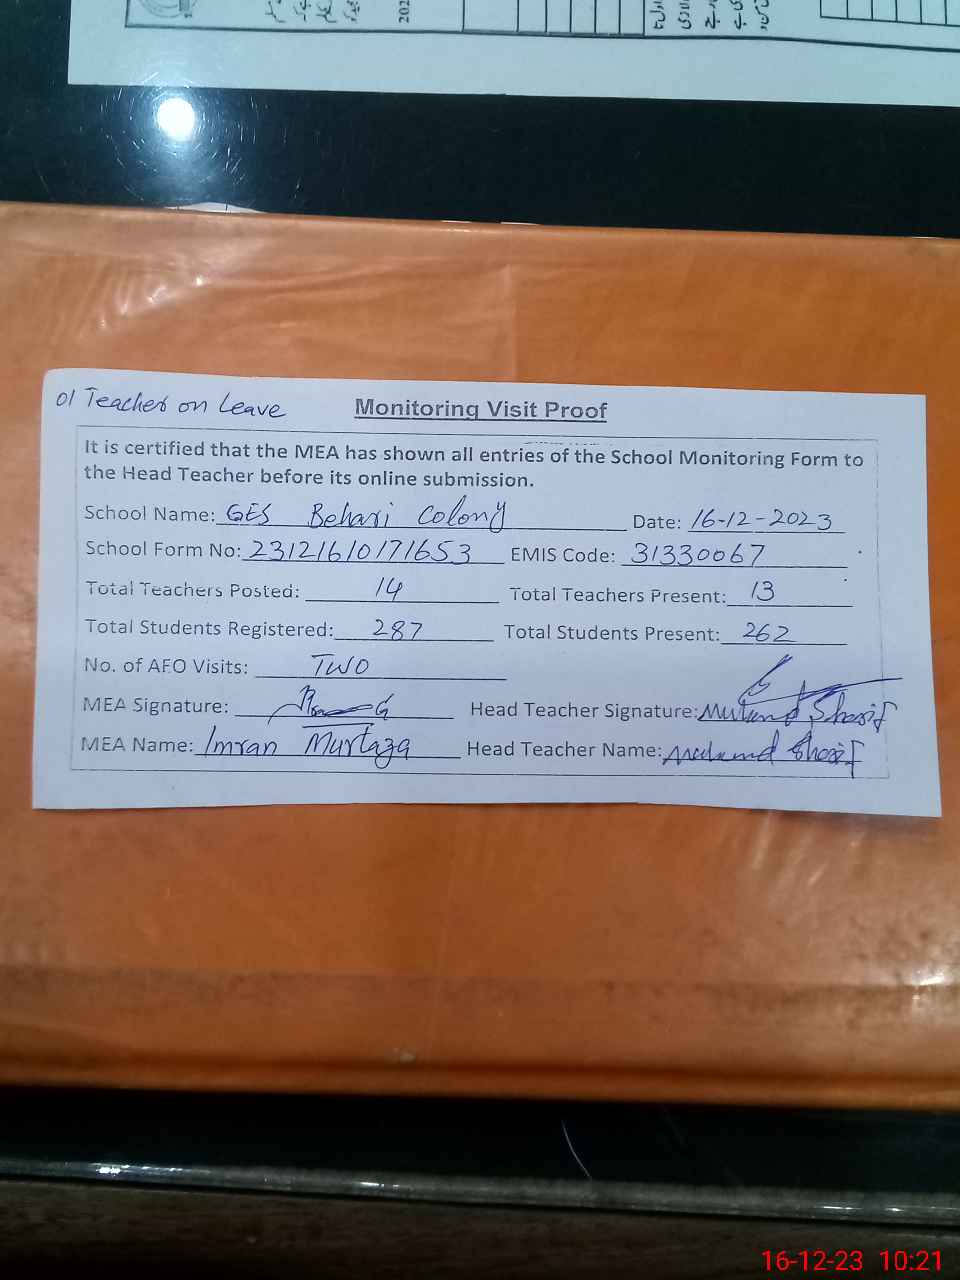 202
01 Teacher on Leave
Monitoring Visit Proof
It is certified that the MEA has shown all entries of the School Monitoring Form to
the Head Teacher before its online submission.
School Name: GES Behari Colony Date: 16-12-2023
School Form No: 23121610171653 EMIS Code: 31330067
Total Teachers Posted: 14 Total Teachers Present: 13
Total Students Registered: 287 Total Students Present: 262
No. of AFO Visits: TWO
MEA Signature: Head Teacher Signature: Sharif
MEA Name: Imran Murtaza Head Teacher Name: Sharif
16-12-23 10:21